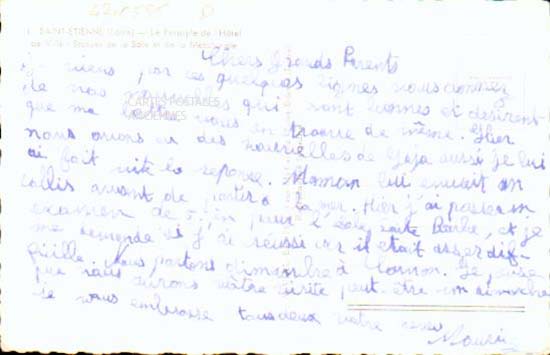 1 SAINT-ETIENNE (Loire) — Le Péristyle de l'Hôtel
de Ville - Statues de la
Chers Grands Parents
Je viens par ces quelques lignes vous donner
de nos nouvelles qui sont bonnes et désirent
que ma lettre vous en trouve de même. Hier
nous avons eu des nouvelles de Geja aussi je lui
ai fait vite la reponse. Maman lui envoit un
collis avant de partir à la mer. Hier j'ai passer un
examen de pour l' Barbe, et je
me demande si j'ai réussi car il était asser dif-
ficille. Nous partons dimanche à Je pense
que nous aurons votre visite peut-être un dimanche
Je vous embrasse tous deux votre
CARTES POSTALES
ANCIENNES